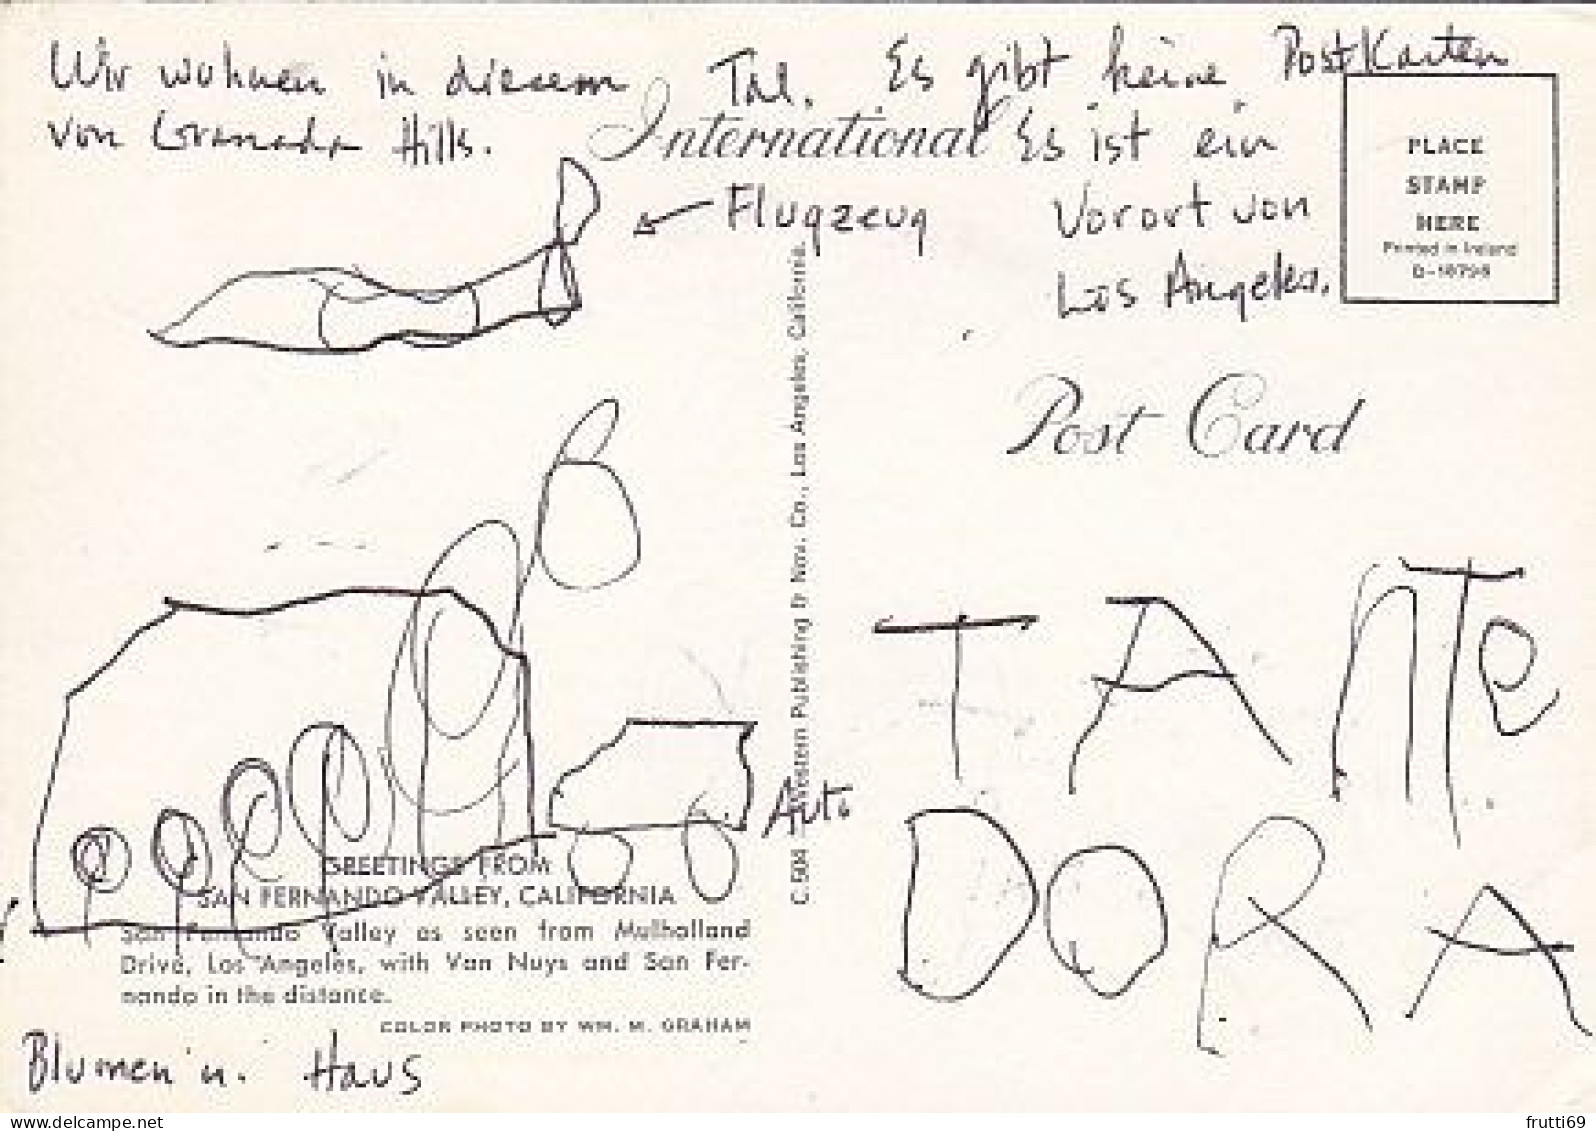 Wir wohnen in diesem Tal. Es gibt keine Postkarten
von Granada Hills. Es ist ein
International
Vorort von
Los Angeles.
← Flugzeug
PLACE
STAMP
HERE
Printed in Ireland
D-18798
Post Card
C.504 — Western Publishing & Nov. Co., Los Angeles, California.
TANTe
DORA
Auto
GREETINGS FROM
SAN FERNANDO VALLEY, CALIFORNIA
San Fernando Valley as seen from Mulholland
Drive, Los Angeles, with Van Nuys and San Fer-
nando in the distance.
COLOR PHOTO BY WM. M. GRAHAM
Blumen u. Haus
delcampe.net
frutti69